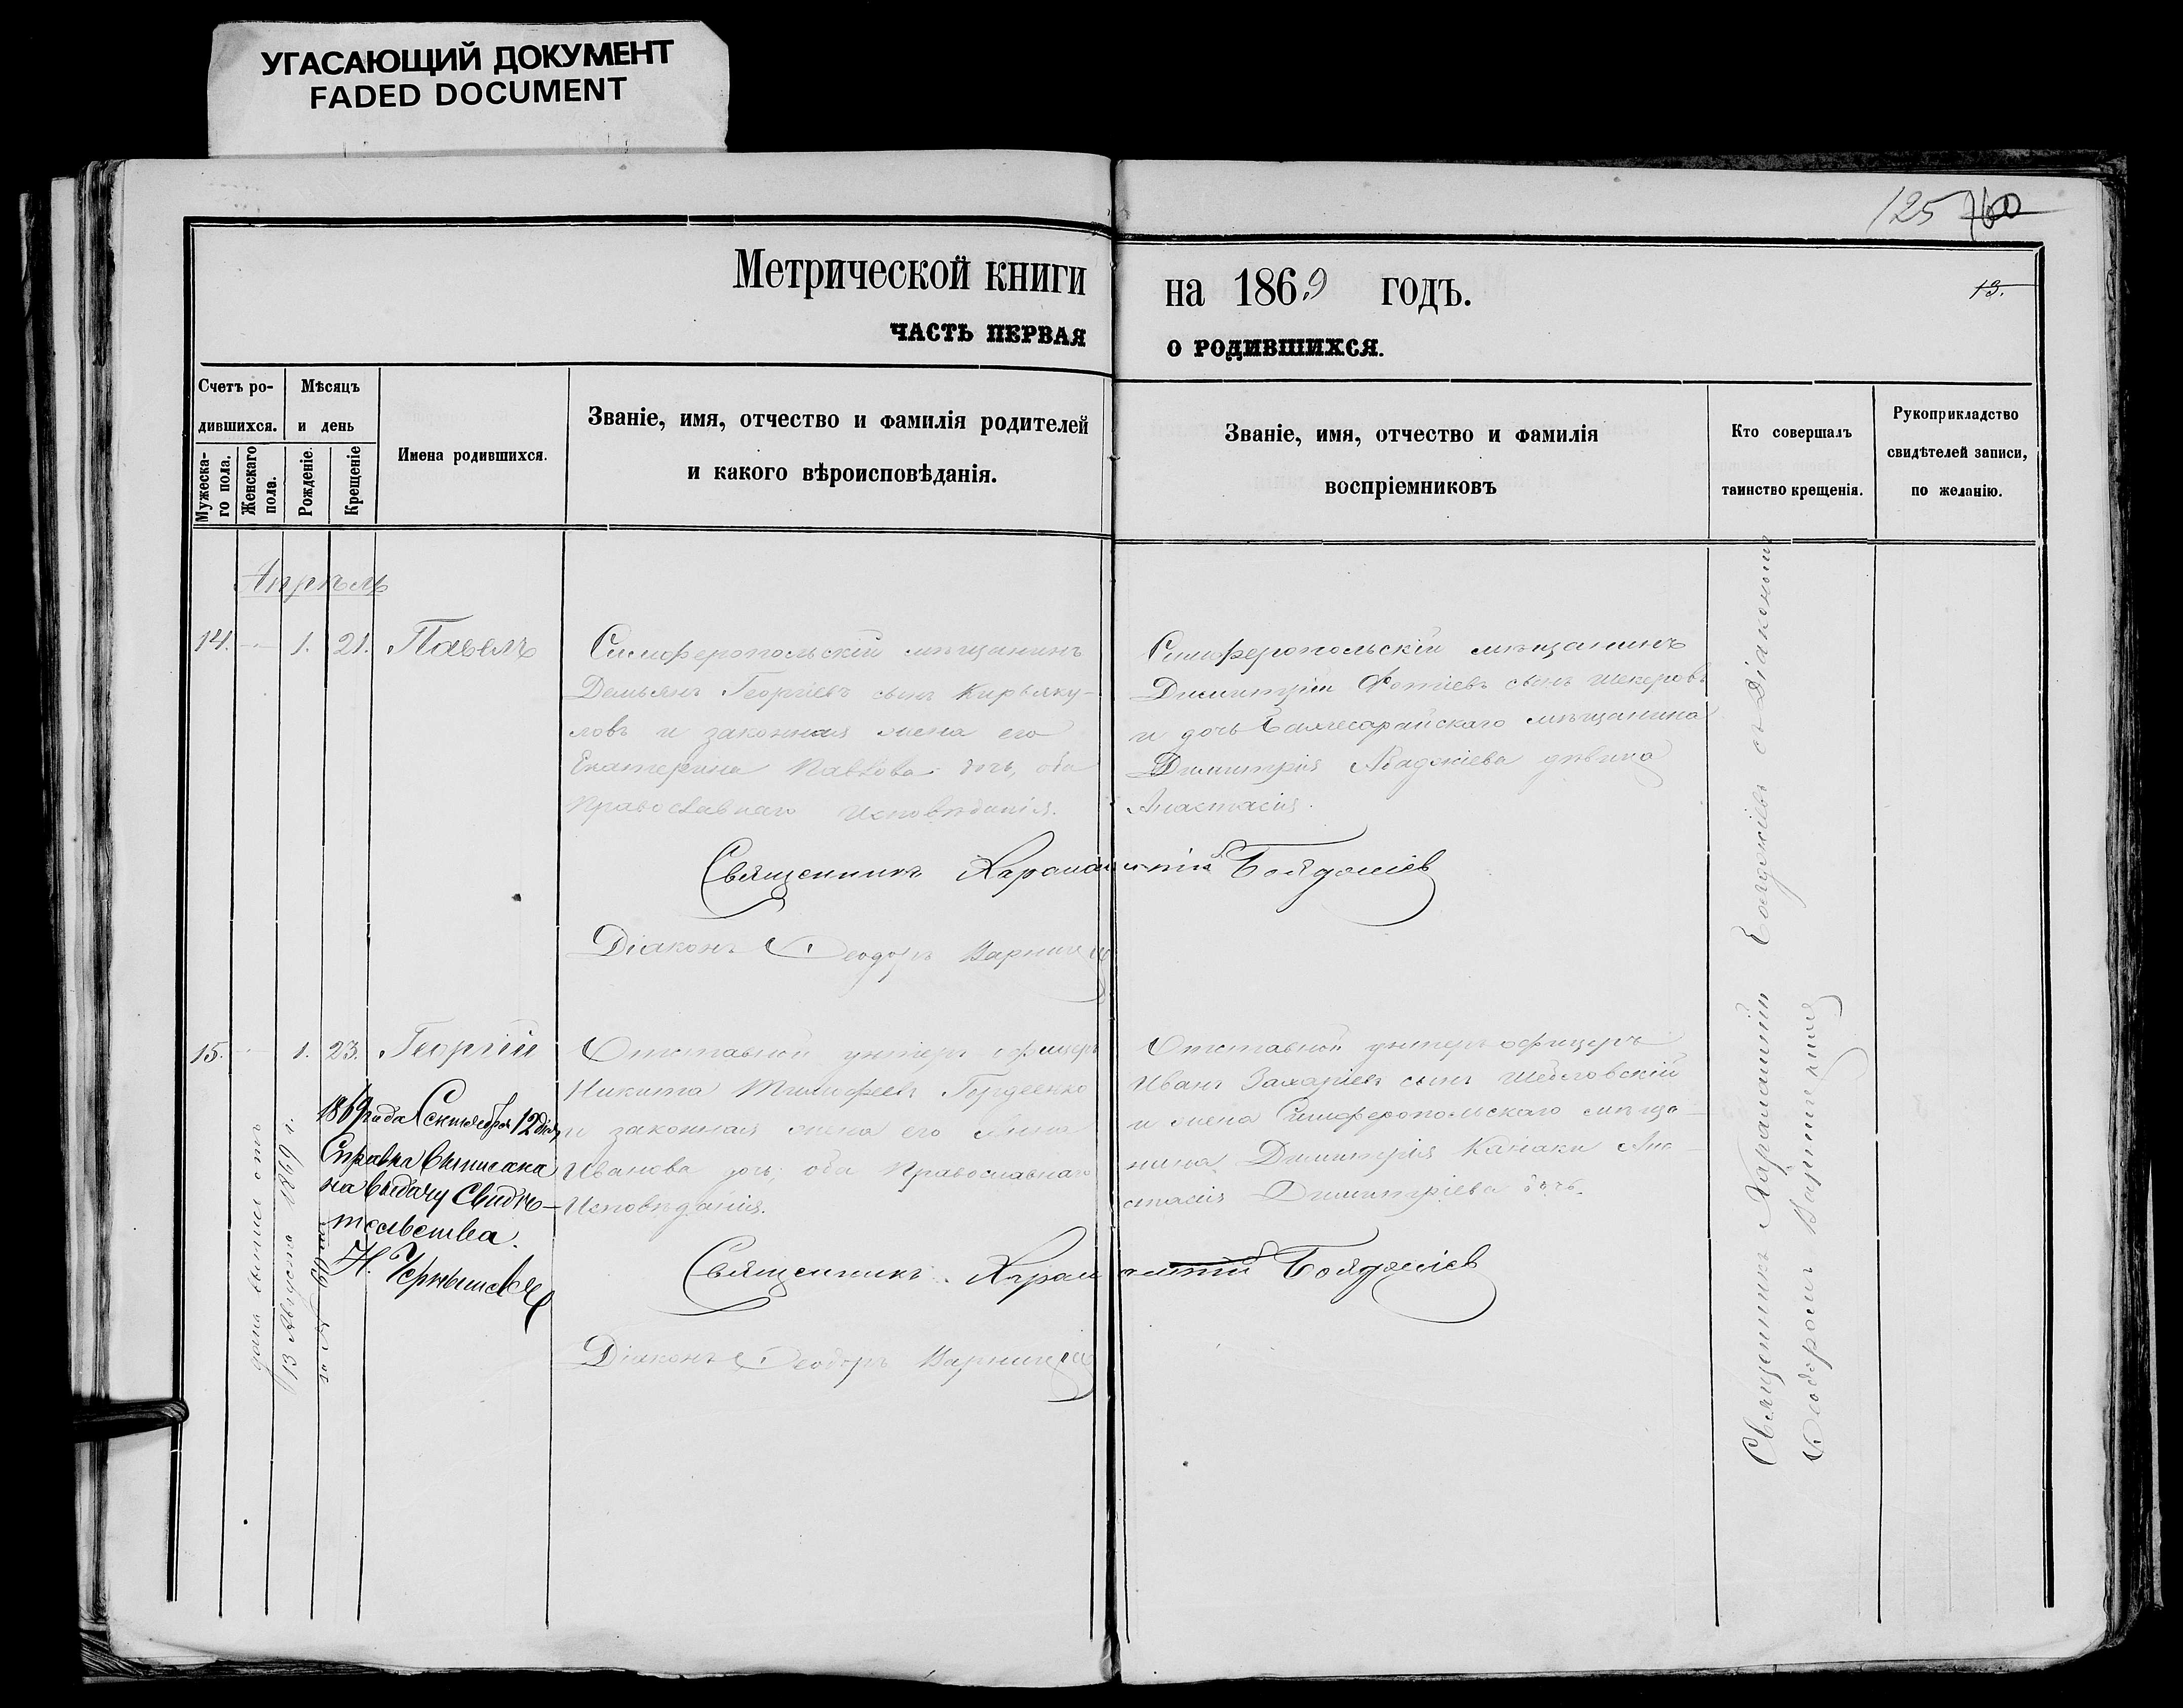 УГАСАЮЩИЙ ДОКУМЕНТ
FADED DOCUMENT
125 760
Метрической книги на 1869 годъ.
13.
ЧАСТЬ ПЕРВАЯ О РОДИВШИХСЯ.
Счетъ ро-
дившихся.
Мужеска-
го пола.
Женскаго
пола.
Мѣсяцъ
и день
Рожденіе.
Крещеніе
Имена родившихся.
Званіе, имя, отчество и фамилія родителей
и какого вѣроисповѣданія.
Званіе, имя, отчество и фамилія
воспріемниковъ
Кто совершалъ
таинство крещенія.
Рукоприкладство
свидѣтелей записи,
по желанію.
Апрѣль
14. — 1. 21. Павелъ
Симферопольскій мѣщанинъ
Демьянъ Георгіевъ сынъ Кирьяку-
ловъ и законная жена его
Екатерина Павлова дочь, оба
Православнаго Исповѣданія.
Симферопольскій мѣщанинъ
Димитрій Фотіевъ сынъ Шекеровъ
и дочь Бахчесарайскаго мѣщанина
Димитрія Абаджіева дѣвица
Анастасія.
Священникъ Харалампій Бояджіев
Діаконъ Ѳеодоръ
15. — 1. 23. Георгій
Отставной унтеръ офицеръ
Никита Тимофеевъ Гордеенко
и законная жена его Анна
Иванова дочь оба Православнаго
Исповѣданія.
Отставной унтеръ офицеръ
Иванъ Захаріевъ сынъ
и жена Симферопольскаго мѣща-
нина Димитрія Канаки Ана-
стасія Димитріева дочь.
1869 года Сентября 12 дня
Справка выписана
на выдачу Свидѣ-
тельства.
Н. Чернышев
дана выпись отъ
13 Августа 1869 г.
за №
Священникъ Харалампій Бояджіев
Діаконъ Ѳеодоръ
Священникъ Харалампій Бояджіевъ съ Діакономъ
Ѳеодоромъ